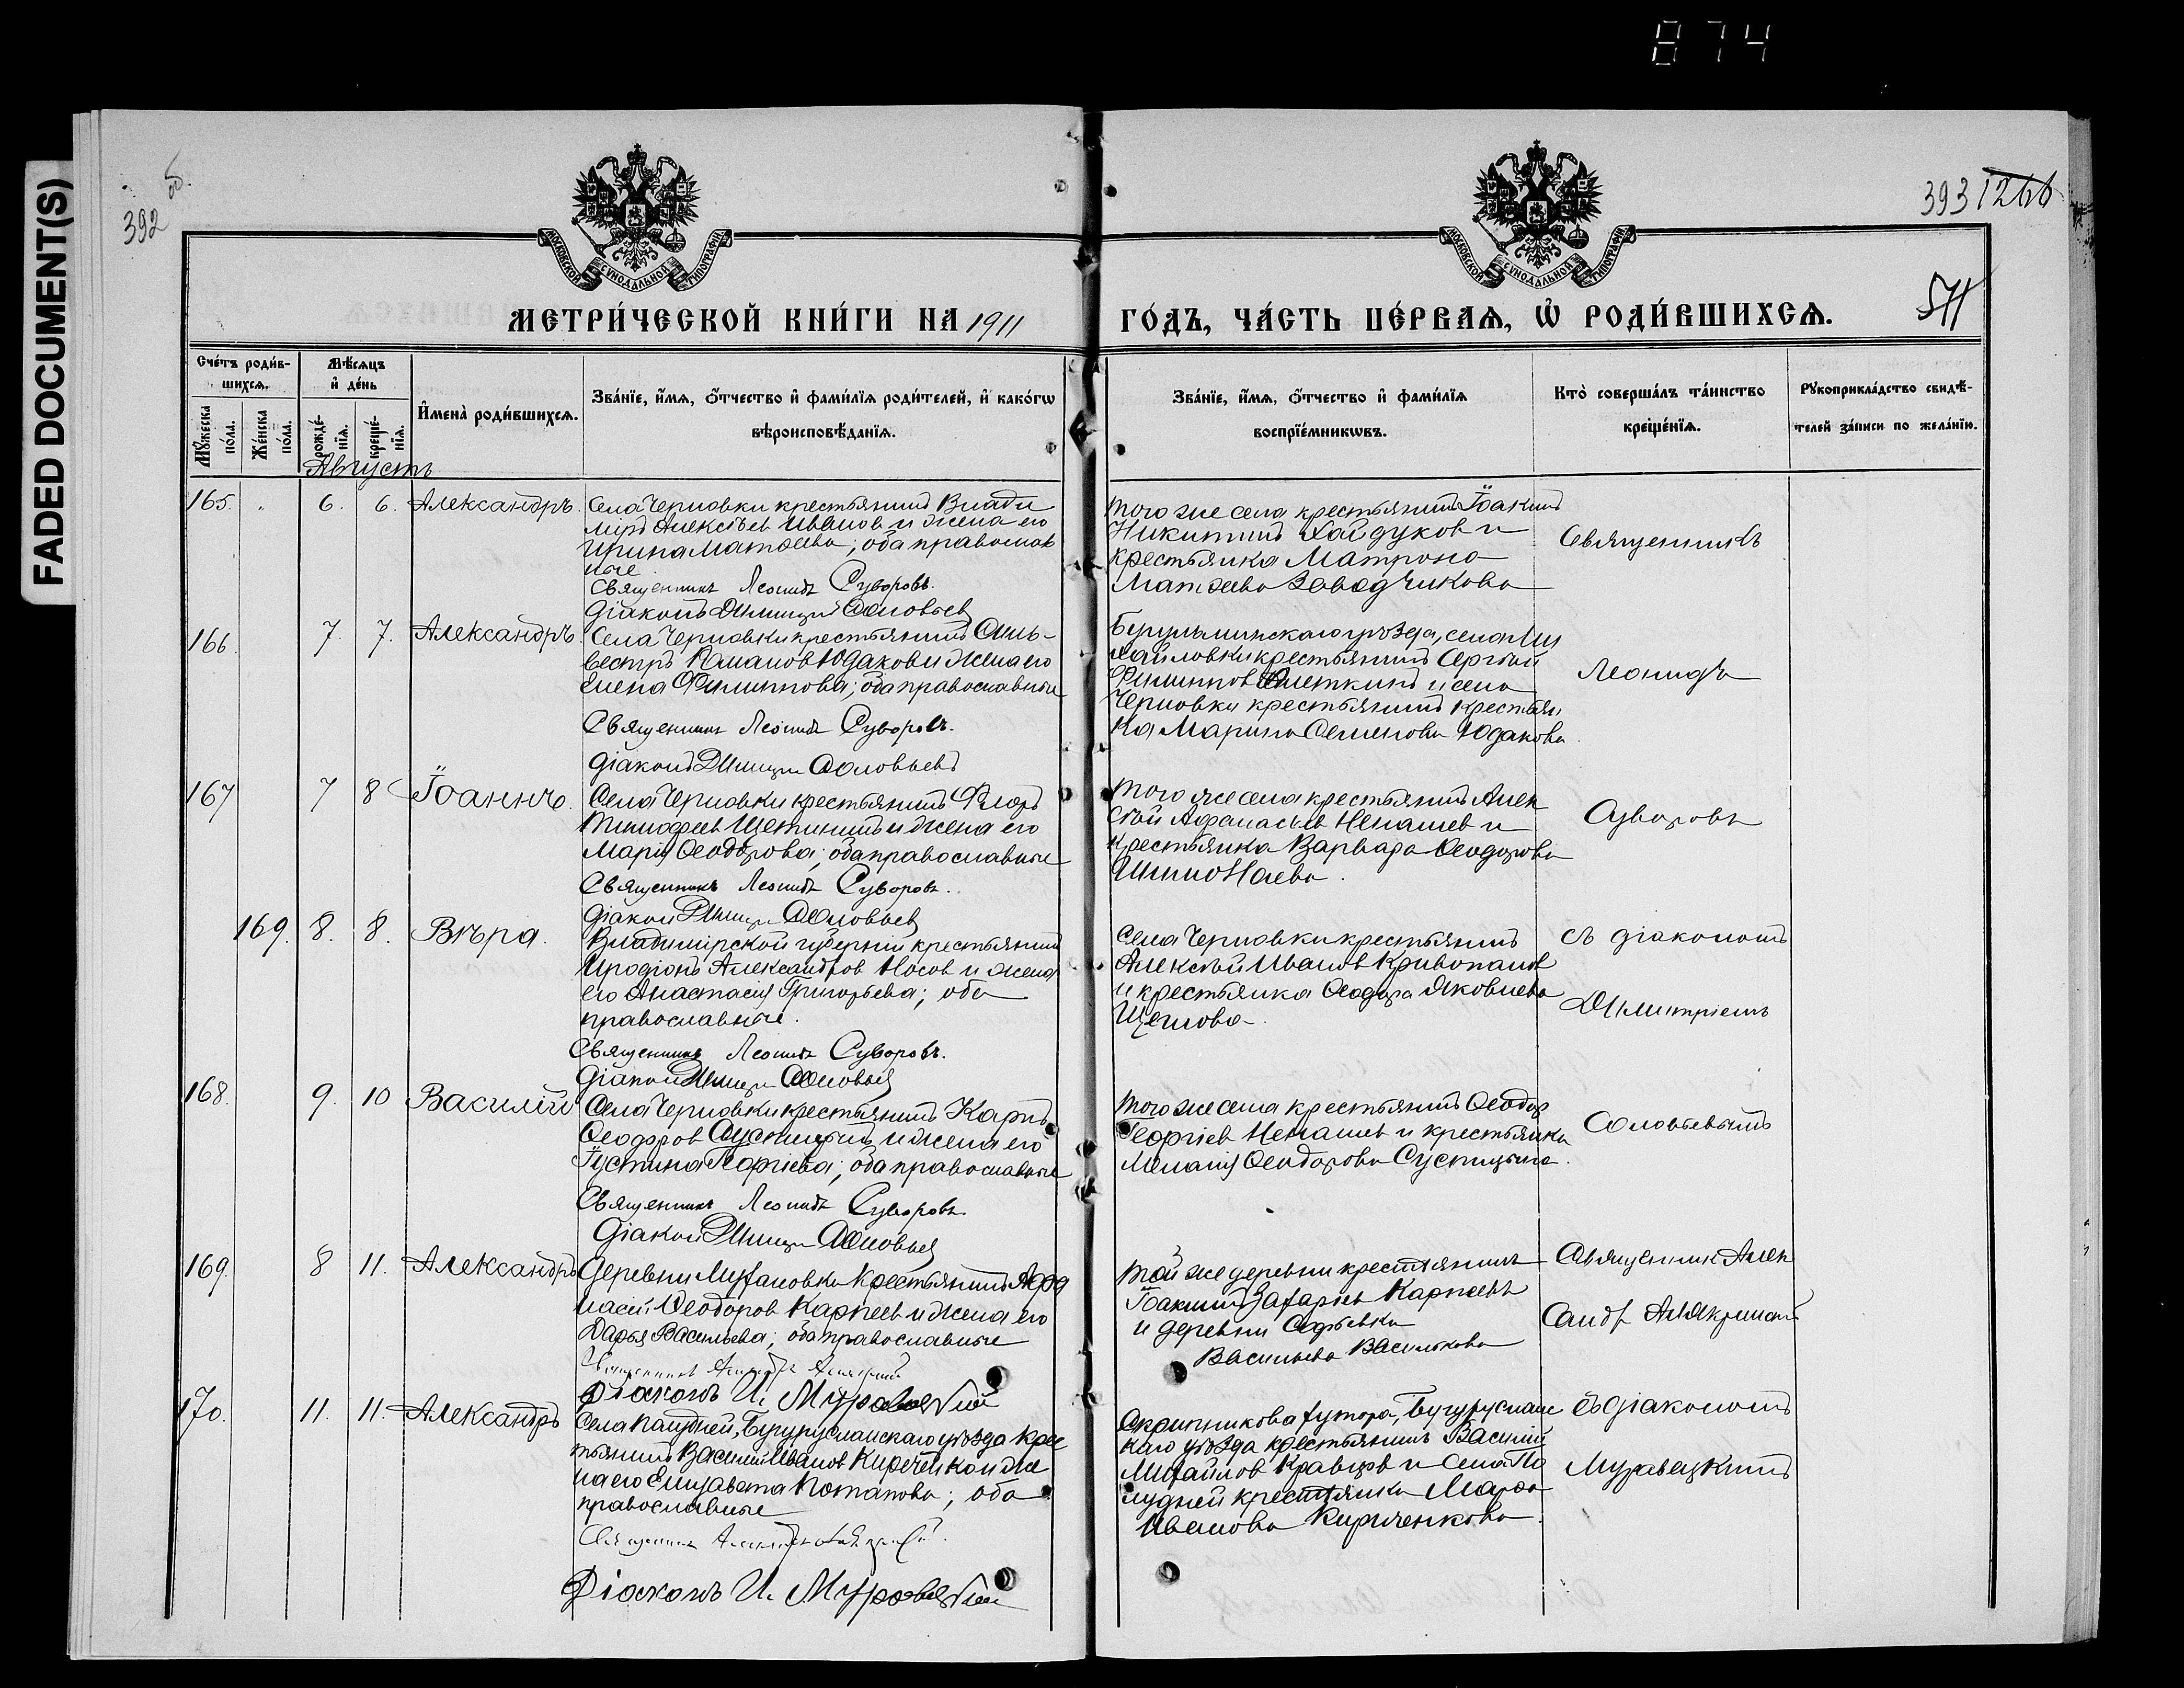 874
FADED DOCUMENT(S)
392
об.
393 1266
511
МОСКОВСКОЙ СѴНОДАЛЬНОЙ ТИПОГРАФІИ
МОСКОВСКОЙ СѴНОДАЛЬНОЙ ТИПОГРАФІИ
МЕТРИ́ЧЕСКОЙ КНИ́ГИ НА 1911
ГО́ДЪ, ЧА́СТЬ ПЕ́РВАѦ, Ѡ҆ РОДИ́ВШИХСѦ.
Сче́тъ роди́в-
шихсѧ.
Мѣ́сѧцъ
и҆ де́нь
Мꙋ́жеска по́ла.
Же́нска по́ла.
рожде́-нїѧ.
креще́-нїѧ.
И҆́мена̀ роди́вшихсѧ.
Зва́нїе, и҆́мѧ, ѻ҆́тчество и҆ фами́лїѧ роди́телей, и҆ како́гѡ
вѣроисповѣ́данїѧ.
Зва́нїе, и҆́мѧ, ѻ҆́тчество и҆ фами́лїѧ
воспрїе́мникѡвъ.
Кто̀ соверша́лъ та́инство
креще́нїѧ.
Рꙋкоприкла́дство свидѣ́-
телей за́писи по жела́нїю.
Августъ
165. " 6. 6. Александръ.
Села Черновки крестьянинъ Влади
миръ Алексѣев Иванов и жена его
Ирина Матѳеева; оба православ
ные
Священникъ Леонидъ Суворовъ.
Діаконъ Димитрій Соловьев
Того же села крестьянинъ Іоакимъ
Никитинъ Хайдуков и
крестьянка Матрона
Матѳеева Заводчикова
Священникъ
166. 7. 7. Александръ
Села Черновки крестьянинъ Силь-
вестръ Романов Юдаков и жена его
Елена Филиппова; оба православные
Священникъ Леонидъ Суворовъ.
Діаконъ Димитрій Соловьевъ
Бугульминскаго уѣзда, села Ми
хайловки крестьянинъ Сергѣй
Филиппов и села
Черновки крестьянинъ крестьян
ка Марина Семенова Юдакова
Леонидъ
167 7 8 Іоаннъ.
Села Черновки крестьянинъ Флоръ
Тимофеев Щетининъ и жена его
Марія Ѳеодорова; оба православные
Священникъ Леонидъ Суворовъ.
Діаконъ Димитрій Соловьев
Того же села крестьянинъ Алек
сѣй Афанасьев Ненашев и
крестьянка Варвара Ѳеодорова
Суворовъ
169. 8. 8. Вѣра.
Владимірской губерніи крестьянинъ
Иродіонъ Александров Носов и жена
его Анастасія Григорьева; оба
православные.
Священникъ Леонидъ Суворовъ.
Діаконъ Димитрій Соловьев
Села Черновки крестьянинъ
Алексѣй Иванов Кривопалов
и крестьянка Ѳеодора Яковлева
Щеглова.
съ діакономъ
Димитріемъ
168. 9. 10 Василій
Села Черновки крестьянинъ Карпъ
Ѳеодоров Суспицынъ и жена его
Іустина Георгіева; оба православные
Священникъ Леонидъ Суворовъ.
Діаконъ Димитрій Соловьев
Того же села крестьянинъ Ѳеодор
Георгіев Ненашев и крестьянка
Меланія Ѳеодорова Суспицына.
Соловьевымъ
169. 8 11. Александръ
Деревни Михайловки крестьянинъ Аѳа
насій Ѳеодоров Карпеев и жена его
Дарья Васильева; оба православные
Діаконъ И. Муравецкій
Той же деревни крестьянинъ
Іоакимъ Захаріев Карпеевъ
и деревни Софьевки
Васильева Василькова
Священник Алек
сандр
170. 11. 11. Александръ
Села Полудней, Бугурусланскаго уѣзда крес
тьянинъ Василій Иванов Киричёнко и же
на его Елизавета Потапова; оба
православные
Діаконъ И. Муравецкій
Скрипникова хутора, Бугуруслан
каго уѣзда крестьянинъ Василій
Михайлов Кравцов и села По
лудней крестьянка Марѳа
Иванова Кириченкова.
съ діакономъ
Муравецкимъ